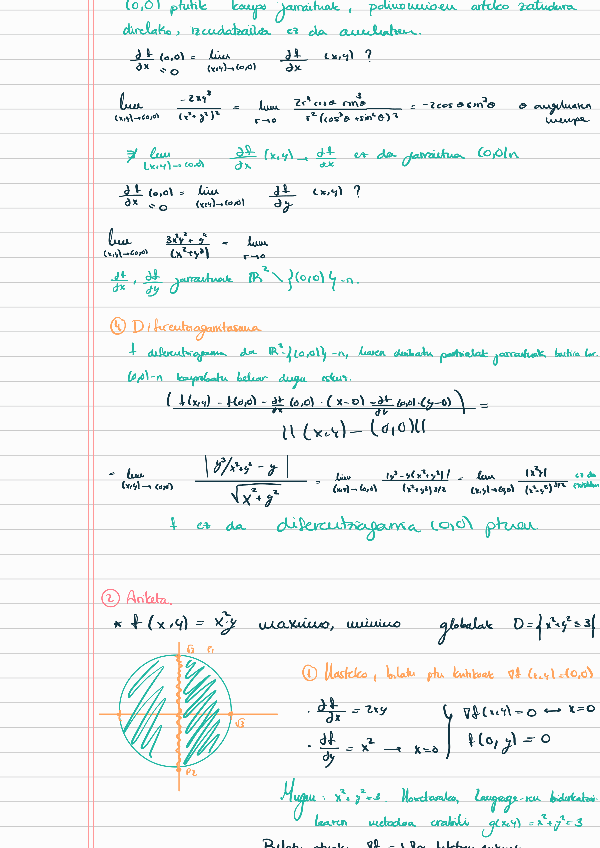 (0,0) ptutik kanpo jarraituak, polinomioen arteko zatidura
direlako, izendatzailea ez da anulatzen.
∂f/∂x (0,0) = lim (x,y)→(0,0) ∂f/∂x (x,y) ?
= 0
lim (x,y)→(0,0) -2xy³/(x²+y²)² = lim r→0 2r⁴ cosθ sin³θ / r²(cos²θ+sin²θ)² = -2cosθ sin³θ θ angeluaren
menpe
⇒ ∄ lim (x,y)→(0,0) ∂f/∂x (x,y) → ∂f/∂x ez da jarraitua (0,0)n
∂f/∂x (0,0) = lim (x,y)→(0,0) ∂f/∂y (x,y) ?
= 0
lim (x,y)→(0,0) 3x²y²+y²/(x²+y²) = lim r→0
∂f/∂x, ∂f/∂y jarraituak ℝ² \ {(0,0)}-n.
④ Diferentziagarritasuna
f diferentziagarria da ℝ²\{(0,0)}-n, haren deribatu partzialak jarraituak baitira
(0,0)-n konprobatu behar dugu eskuz.
(f(x,y) - f(0,0) - ∂f/∂x (0,0)·(x-0) - ∂f/∂y (0,0)·(y-0)) =
||(x,y) - (0,0)||
= lim (x,y)→(0,0) |y³/x²+y² - y| / √x²+y² = lim (x,y)→(0,0) |y³-y(x²+y²)|/(x²+y²)^3/2 = lim (x,y)→(0,0) |x²y|/(x²+y²)^3/2 ez da
f ez da diferentziagarria (0,0) ptuan.
② Ariketa.
* f(x,y) = x²·y maximo, minimo globalak D={x²+y²≤3}
√3 P1
① Hasteko, bilatu ptu kritikoak ∇f(x,y)=(0,0)
· ∂f/∂x = 2xy ∇f(x,y)=0 ⟷ x=0
√3
· ∂f/∂y = x² → x=0 f(0,y) = 0
P2
Mugan: x²+y²=3. Horretarako, Lagrange-ren biderkatzai-
leen metodoa erabili g(x,y)=x²+y²=3